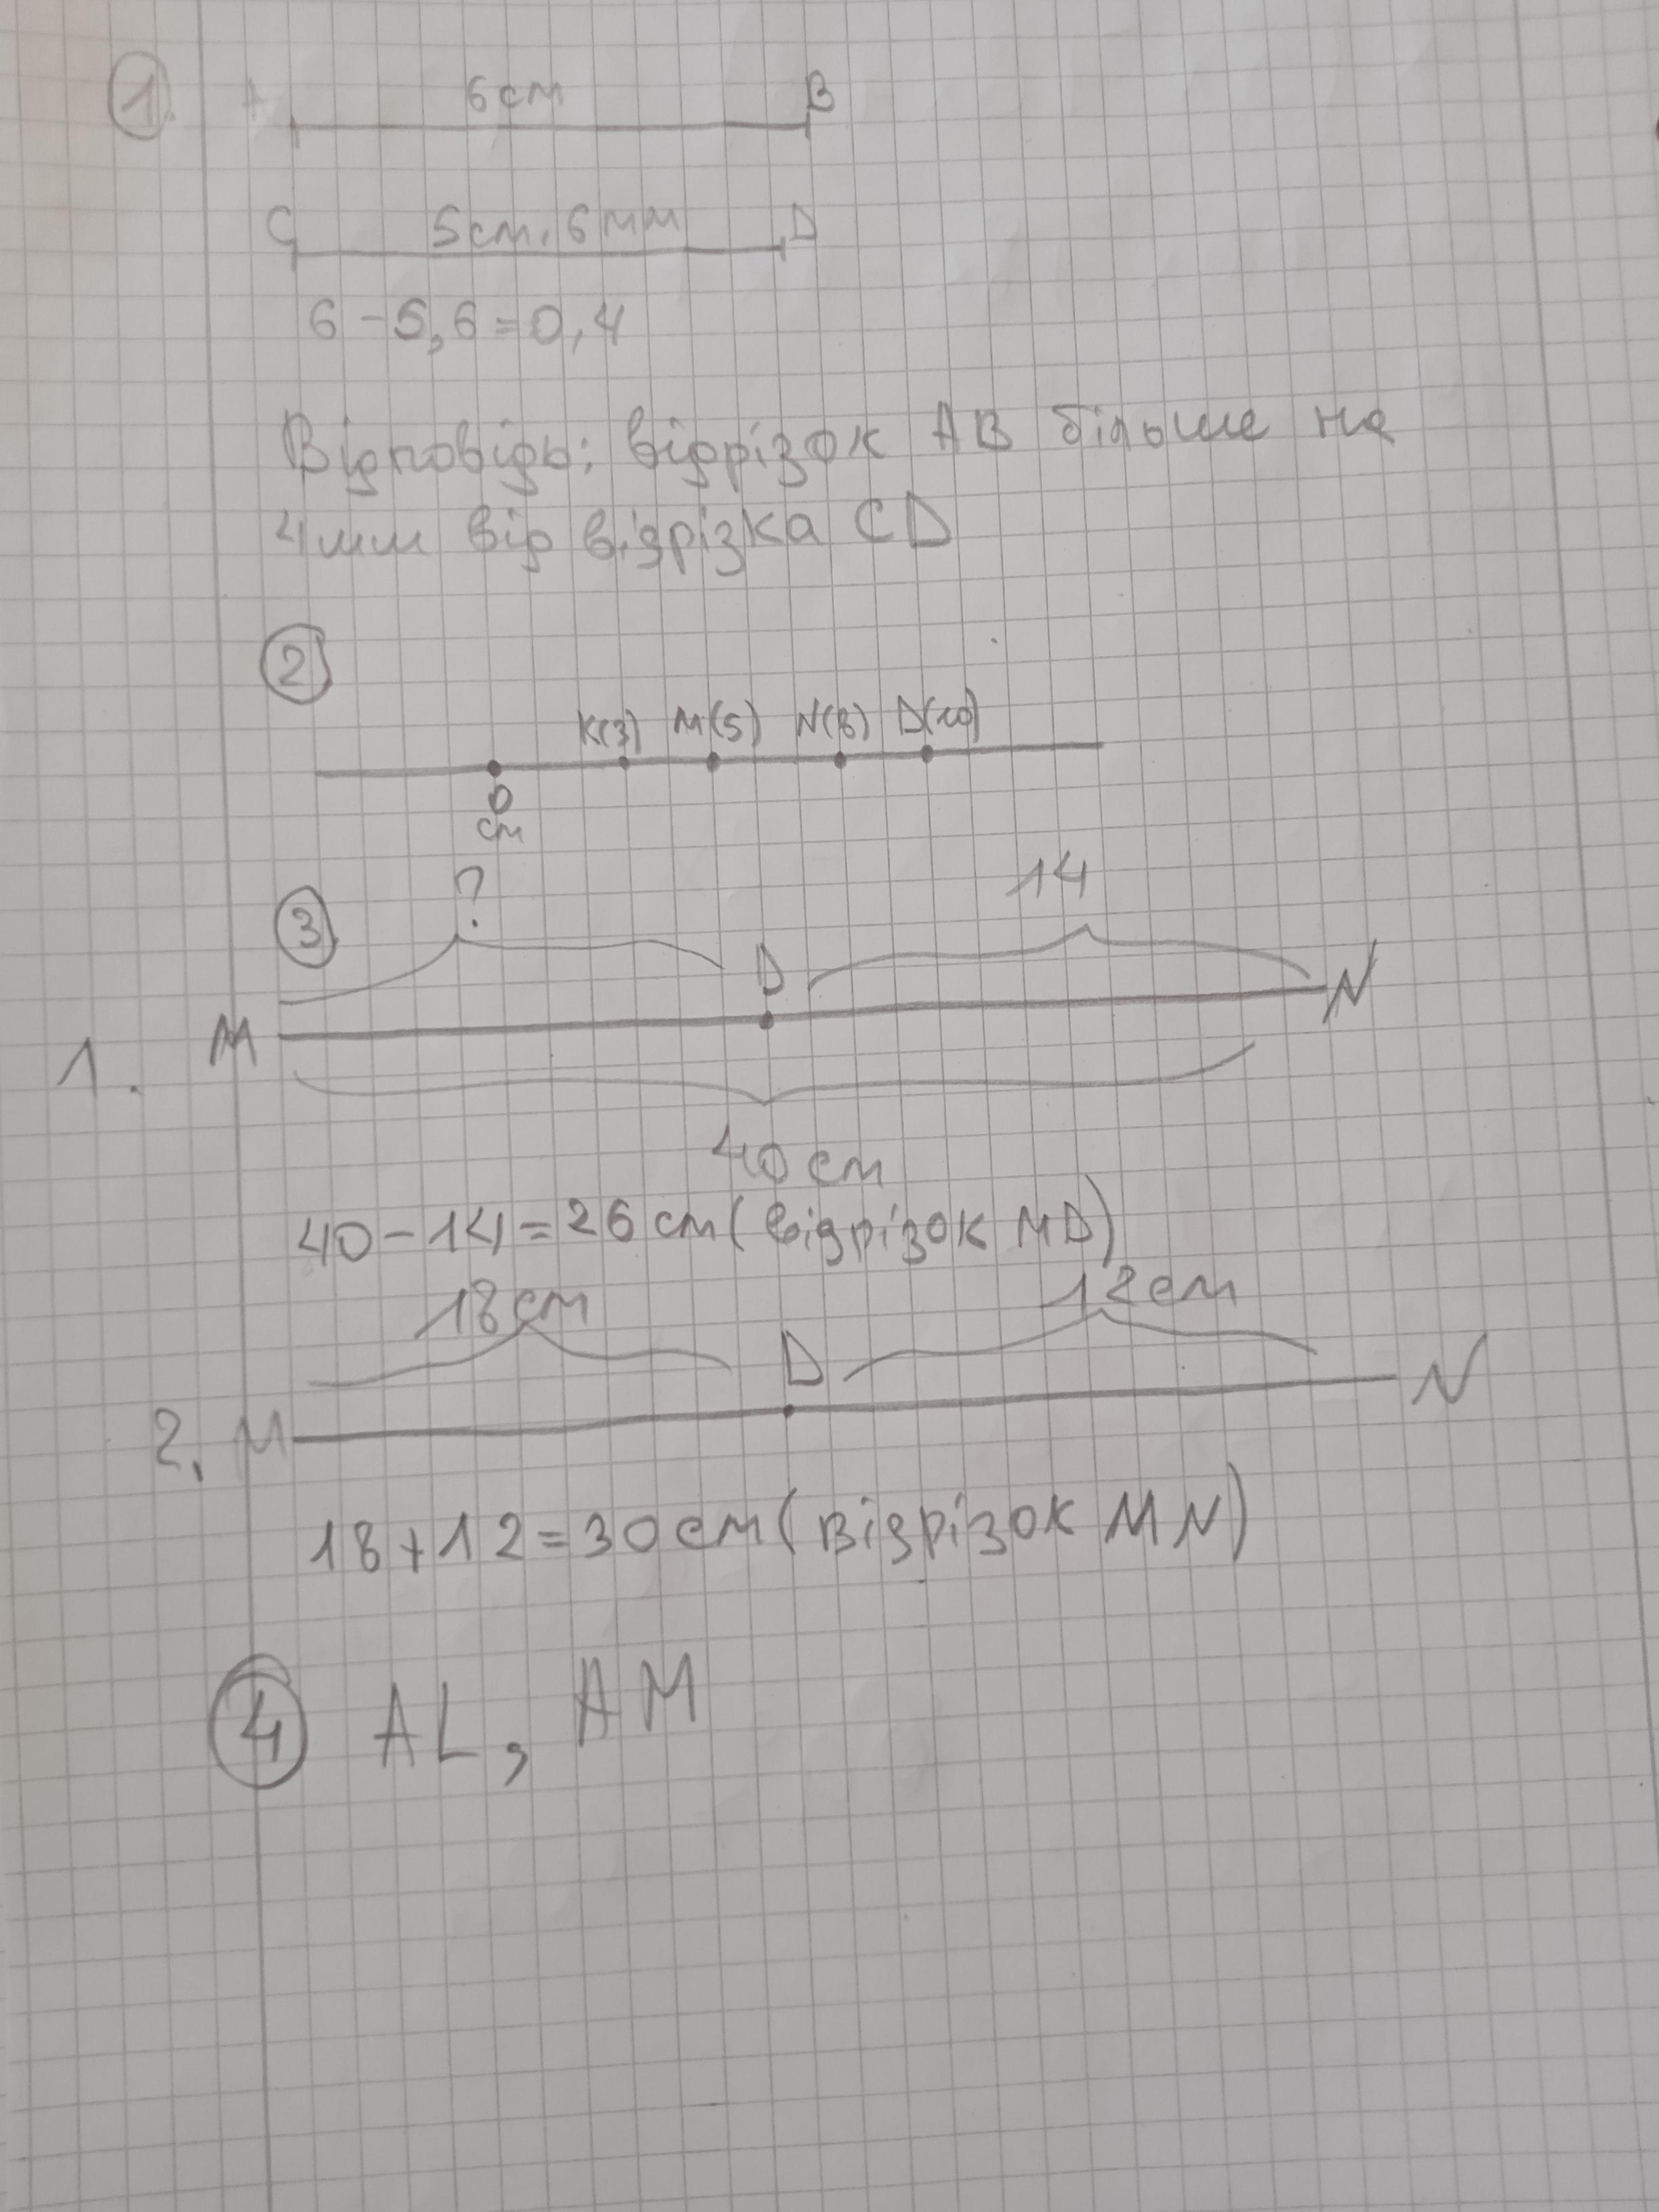 1. A 6см B
C 5см. 6мм D
6-5,6=0,4
Відповідь: відрізок AB більше на
4мм від відрізка CD
2
K(3) M(5) N(8) D(10)
0
см
3 ? 14
1. M D N
40см
40-14=26см(відрізок MD)
18см 12см
2. M D N
18+12=30см(відрізок MN)
4 AL, AM